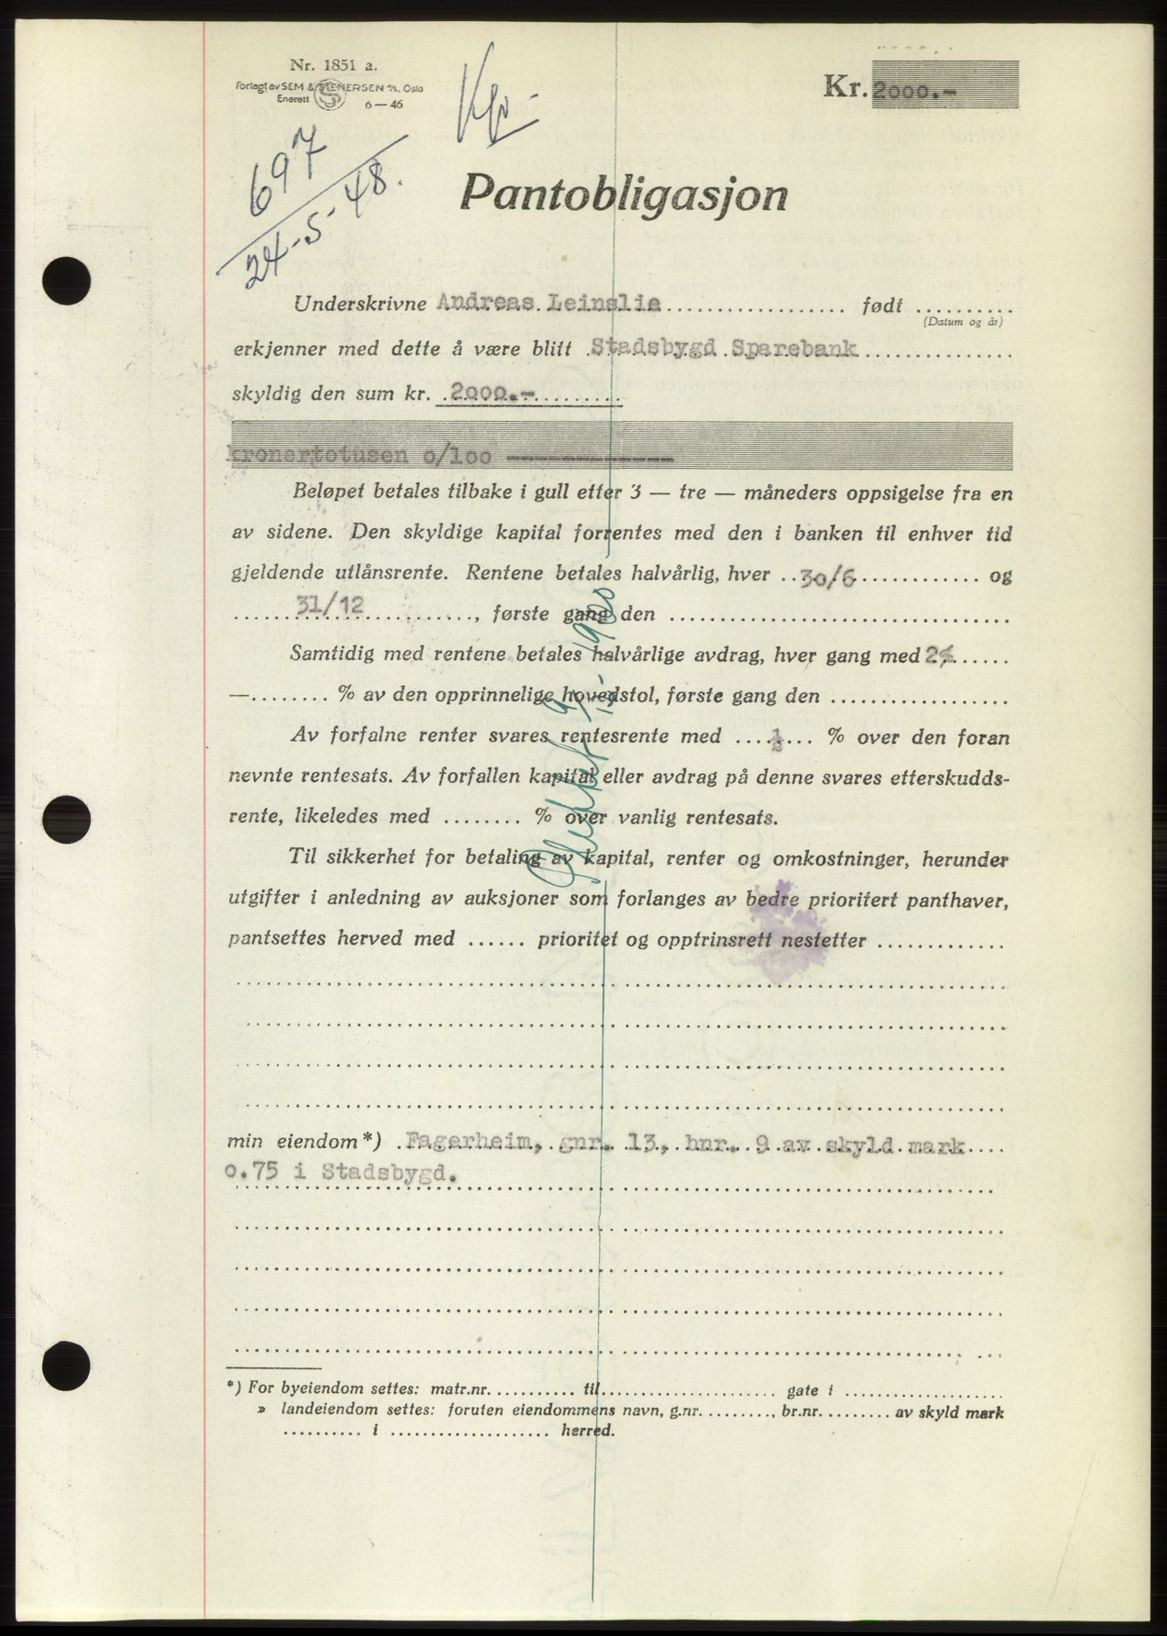 Nr. 1851 a.
Forlagt av SEM & STENERSEN A/S, Oslo
Enerett 6—46
Kr. 2000.-
697
24-5-48.
Pantobligasjon
Underskrivne Andreas Leinslie født
(Datum og år)
erkjenner med dette å være blitt Stadsbygd Sparebank
skyldig den sum kr. 2000.-
kronertotusen 0/100
Beløpet betales tilbake i gull etter 3 — tre — måneders oppsigelse fra en
av sidene. Den skyldige kapital forrentes med den i banken til enhver tid
gjeldende utlånsrente. Rentene betales halvårlig, hver 30/6 og
31/12, første gang den
Samtidig med rentene betales halvårlige avdrag, hver gang med
—........ % av den opprinnelige hovedstol, første gang den
Av forfalne renter svares rentesrente med ½ % over den foran
nevnte rentesats. Av forfallen kapital eller avdrag på denne svares etterskudds-
rente, likeledes med ........ % over vanlig rentesats.
Til sikkerhet for betaling av kapital, renter og omkostninger, herunder
utgifter i anledning av auksjoner som forlanges av bedre prioritert panthaver,
pantsettes herved med ...... prioritet og opptrinsrett nestetter
min eiendom*) Fagerheim, gnr. 13, bnr. 9 av skyld mark
0.75 i Stadsbygd.
*) For byeiendom settes: matr.nr. ........... til ........................ gate i
» landeiendom settes: foruten eiendommens navn, g.nr. ........., br.nr. ......... av skyld mark
........... i .................... herred.